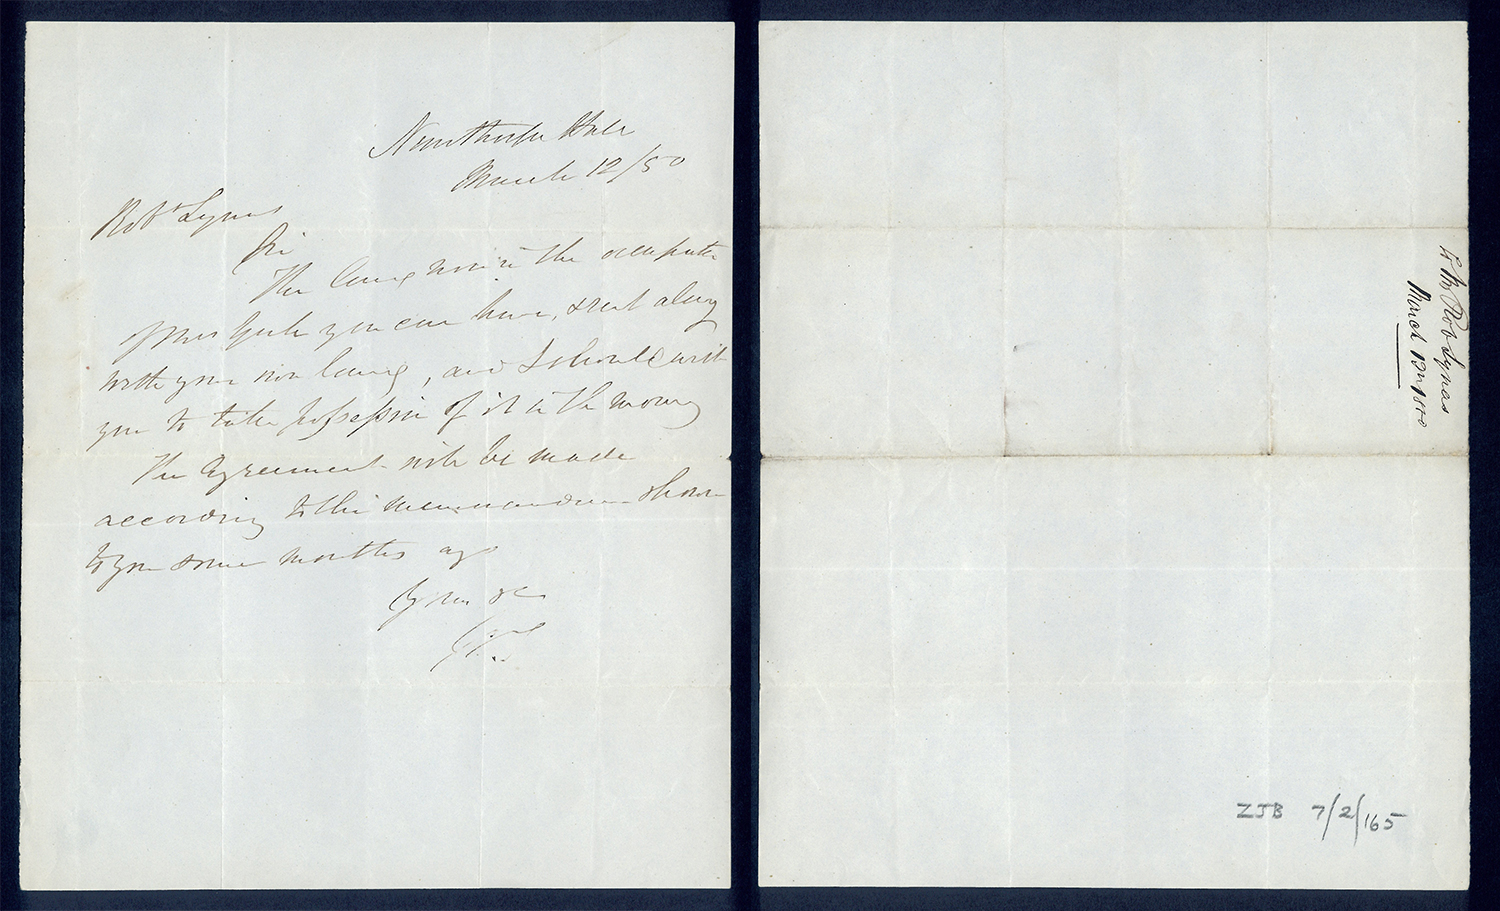 Newthorpe Hall
March 12/50
Robt Lynas
Sir
The land now in the occupatn
of Mrs you can have, & rent along
with your own land, and I should wish
you to take possession of it in the morng
The agreement will be made
according to the memorandum shown
to you some months ago
Yours &c
to Mr Robt Lynas
March 1850
ZJB 7/2/165